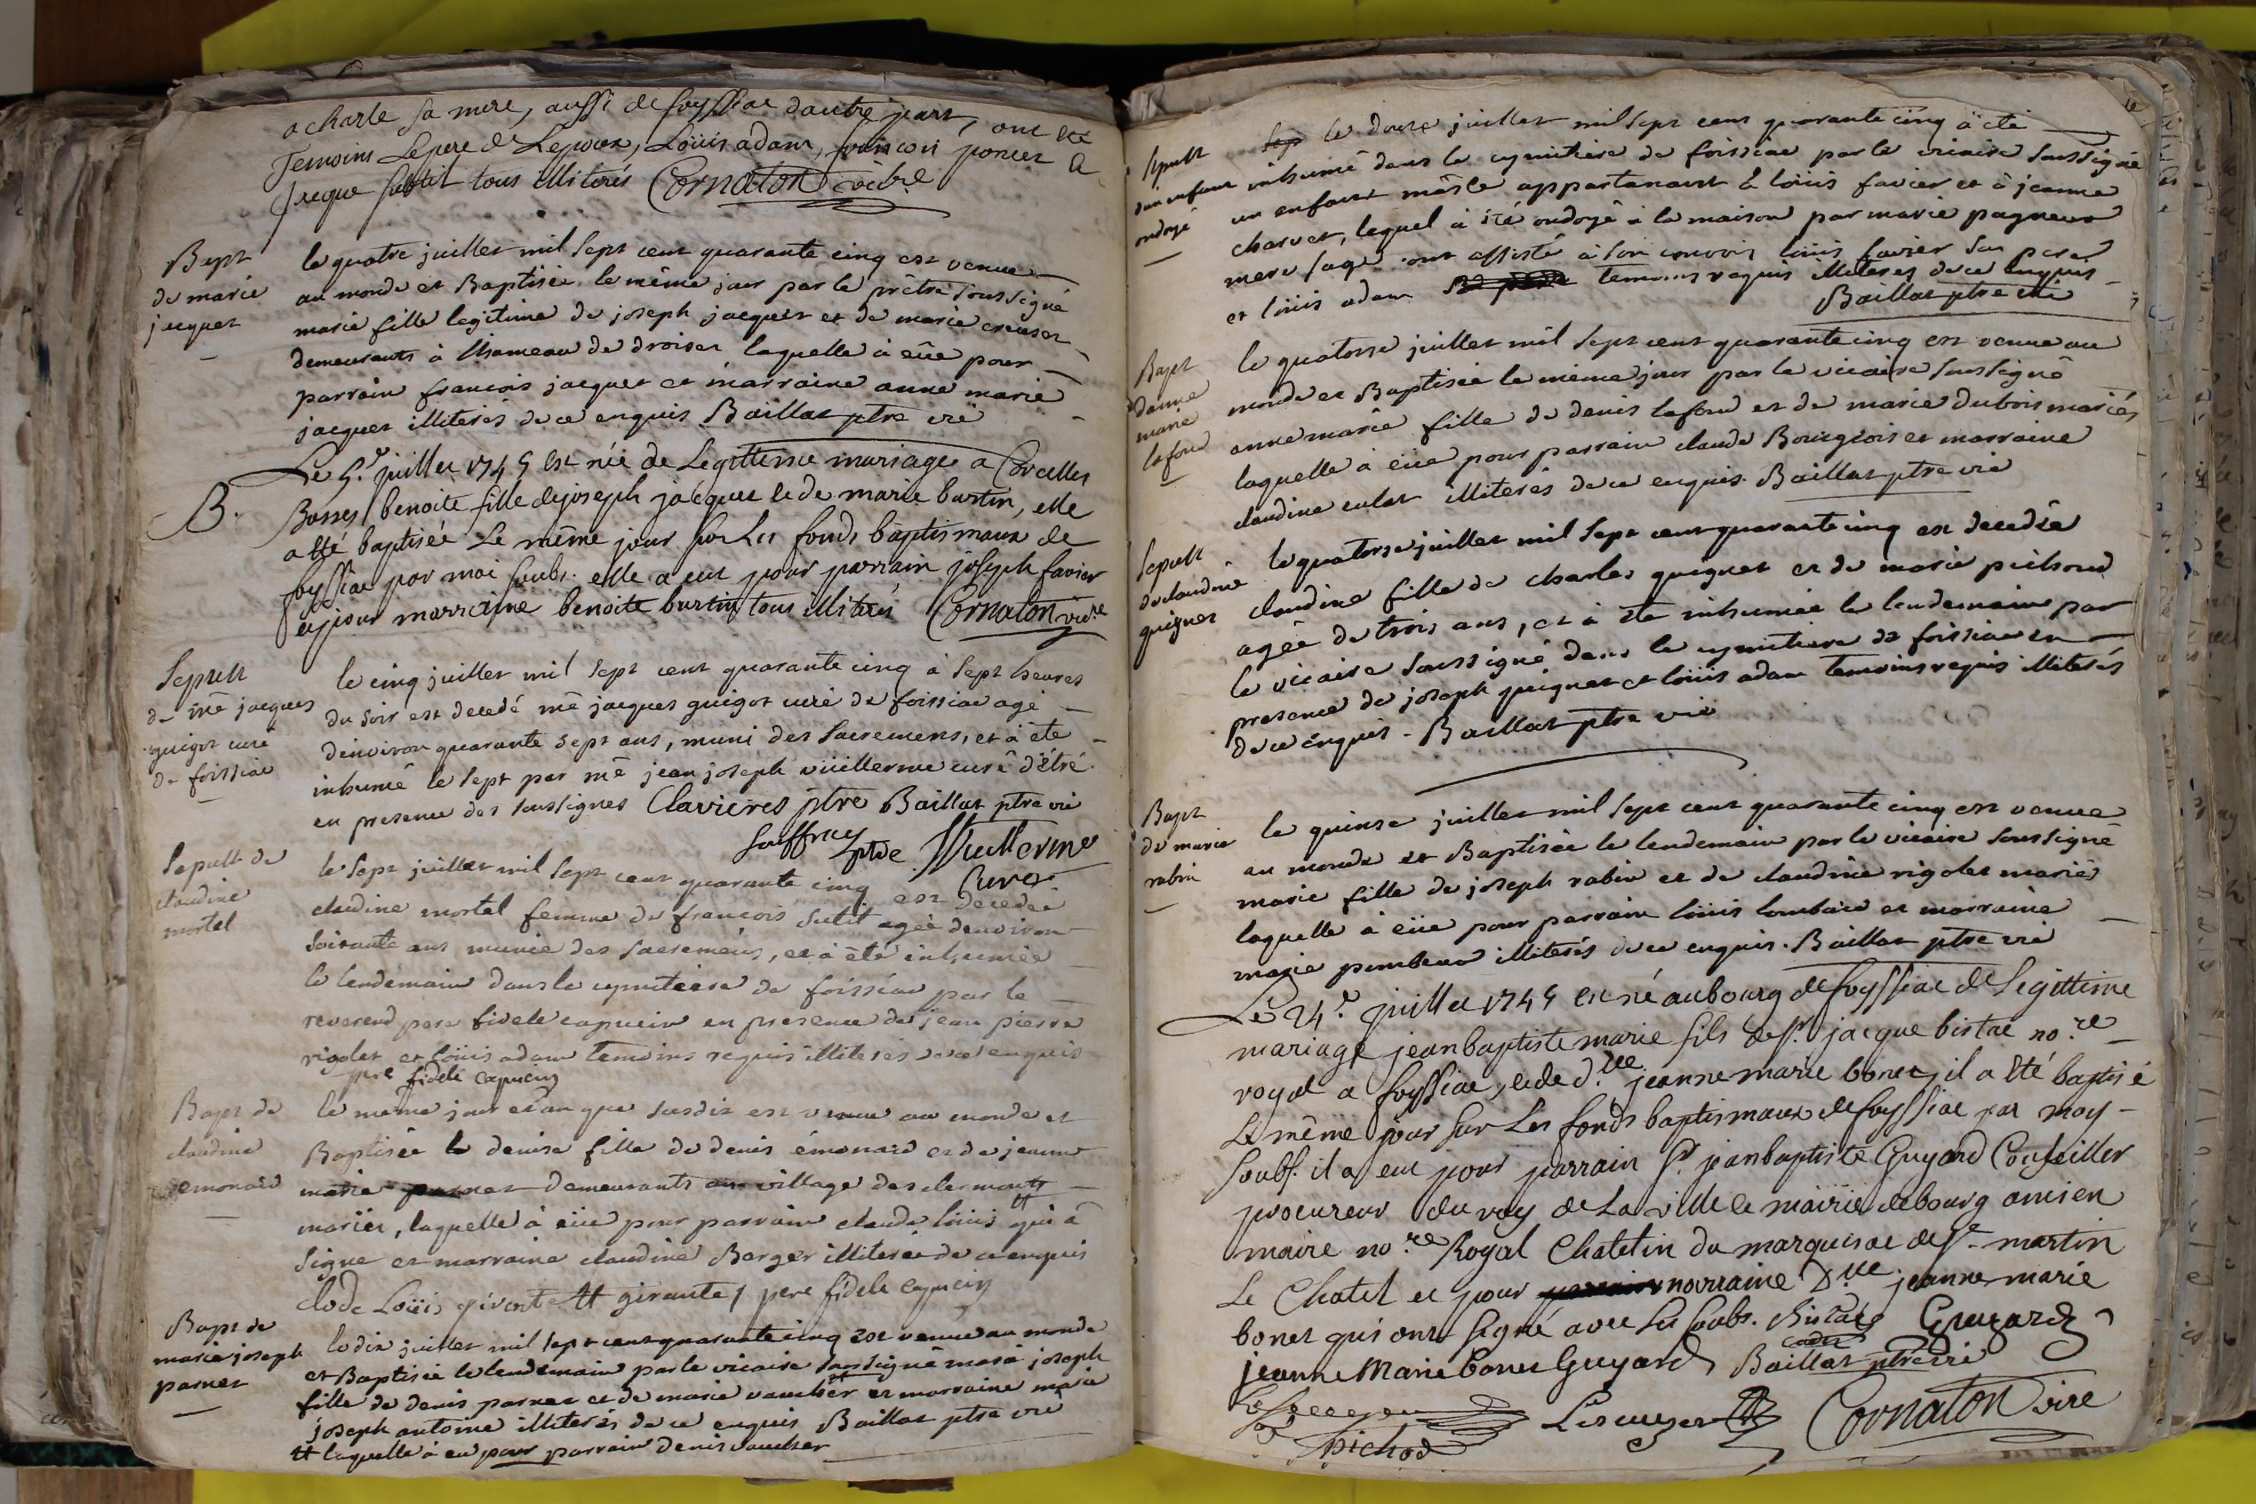 a charle sa mere, aussi de foyssiac dautre part, ont été
Temoins Le pere de Lepoux, Loüis adam, françois poncet &
jreque subtil tous illiterés Cornaton vicre
Bapt
de marie
jacquet
le quatre juillet mil sept cent quarante cinq est venue
au monde et Baptisée le même jour par le prêtre soussigné
marie fille legitime de joseph jacquet et de marie creuset
demeurants à lhameau de droiset laquelle à eüe pour
parrain francois jacquet et marraine anne marie
jacquet illiterés de ce enquis Baillat ptre vic
B.
Le 5e juillet 1745 est née de Legittime mariage a Corcelles
Bosses benoite fille de joseph jacquet et de marie burtin, elle
a été baptisée Le même jour sur Les fonds baptismaux de
foyssiac par moi soubs. elle a eut pour parrain joseph favier
et pour marraine benoite burtin tous illiterés Cornaton vicre
Sepult
de mre jacques
guigot curé
de foissiac
le cinq juillet mil sept cent quarante cinq à sept heures
du soir est decedé mre jacques guigot curé de foissiac agé
denviron quarante sept ans, muni des sacremens, et à ete
inhumé le sept par mre jean joseph vüillerme curé d'étré
en presence des soussignes Clavieres ptre Baillat ptre vic
Souffray ptre JVuillerme
Curé
Sepult de
claudine
mortel
le sept juillet mil sept cent quarante cinq est decedée
claudine mortel femme de francois subtil agée denviron
soixante ans munie des sacremens, et à été inhumée
le lendemain dans le cymitiere de foissiac par le
reverend pere fidele capucin en presence de jean pierre
rigolet et loüis adam temoins requis illiterés de ce enquis
pre fidele capucin
Bapt de
claudine
emonard
le meme jour et an que susdit est venue au monde et
Baptisée denise fille de denis émonard et de jeanne
marie demeurants village des clermonts
mariés, laquelle à eüe pour parrain claude loüis # qui à
signe et marraine claudine Berger illiterée de ce enquis
Clode Loüis girerte # girante / pere fidele capucin
Bapt de
marie joseph
parnet
le dix juillet mil sept cent quarante cinq est venue au monde
et Baptisée le lendemain par le vicaire soussigné marie joseph
fille de denis parnet et de marie vaucher # et marraine marie
joseph antoine illiterés de ce enquis Baillat ptre vic
# laquelle à eu pour parrain denis vaucher
Sepult
dun enfant
ondoyé
le douze juillet mil sept cent quarante cinq à été
inhumé dans le cymitiere de foissiac par le vicaire soussigné
un enfant mâsle appartenant à loüis favier et à jeanne
charvet, lequel à été ondoyé à la maison par marie pagneux
mere sage ont assisté à son convoi loüis favier son pere
et loüis adam temoins requis illiteres de ce enquis
Baillat ptre vic
Bapt
danne
marie
lafond
le quatorse juillet mil sept cent quarante cinq est venue au
monde et Baptisée le même jour par le vicaire soussigné
anne marie fille de denis lafond et de marie dubois mariés
laquelle à eüe pour parrain claude Bourgeois et marraine
claudine culat illiterés de ce enquis. Baillat ptre vic
Sepult
de claudine
guignet
le quatorse juillet mil sept cent quarante cinq est decedée
claudine fille de charles guignet et de marie pichoud
agée de trois ans, et à été inhumée le lendemain par
le vicaire soussigné dans le cymitiere de foissiac en
presence de joseph guignet et loüis adam temoins requis illiterés
de ce enquis - Baillat ptre vic
Bapt
de marie
robin
le quinse juillet mil sept cent quarante cinq est venue
au monde et Baptisée le lendemain par le vicaire soussigné
marie fille de joseph robin et de claudine rigolet mariés
laquelle à eüe pour parrain loüis lombard et marraine
marie illiterés de ce enquis. Baillat ptre vic
Le 24e juillet 1745 est né au bourg de foyssiac de Legittime
mariage jean baptiste marie fils de sr. jacque bistac no.re
royal a foyssiac, et de d.lle jeanne marie bonet, il a été baptisé
Le même jour sur Les fonds baptismaux de foyssiac par moy
soubs. il a eut pour parrain sr. jean baptiste Guyard Conseiller
procureur du roy de La ville et mairie de bourg ancien
maire no.re Royal Chatelin du marquisat de st. martin
Le Chatel et pour marraine D.lle jeanne marie
bonet qui ont signé avec les soubs. Bistac Guyard
jeanne Marie bonet Guyard Baillat ptre vic
Cornaton vicre
pichod